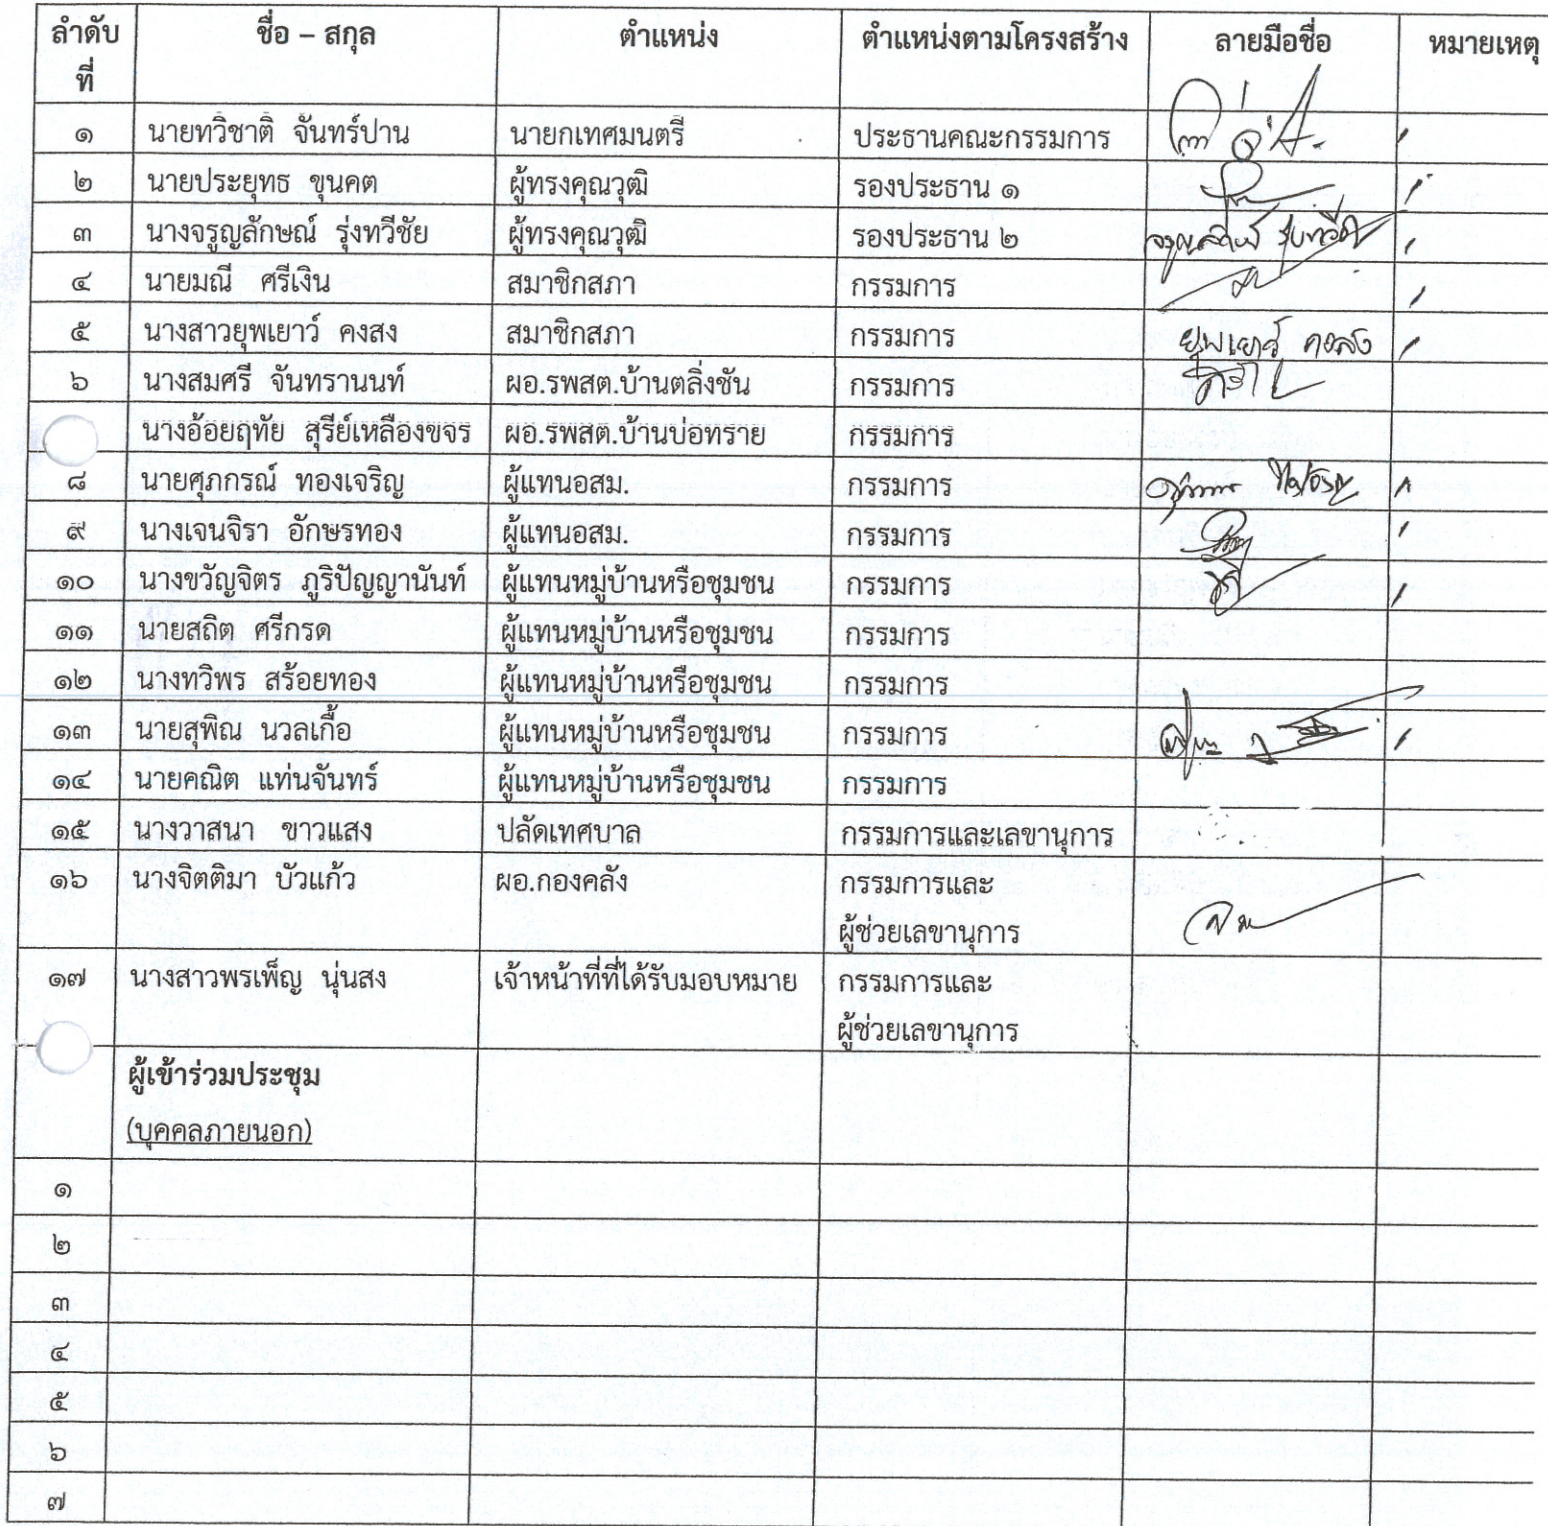 ลำดับ ชื่อ – สกุล ตำแหน่ง ตำแหน่งตามโครงสร้าง ลายมือชื่อ หมายเหตุ
ที่
๑ นายทวิชาติ จันทร์ปาน นายกเทศมนตรี ประธานคณะกรรมการ
๒ นายประยุทธ ขุนคต ผู้ทรงคุณวุฒิ รองประธาน ๑
๓ นางจรูญลักษณ์ รุ่งทวีชัย ผู้ทรงคุณวุฒิ รองประธาน ๒
๔ นายมณี ศรีเงิน สมาชิกสภา กรรมการ
๕ นางสาวยุพเยาว์ คงสง สมาชิกสภา กรรมการ ยุพเยาว์ คงสง
๖ นางสมศรี จันทรานนท์ ผอ.รพสต.บ้านตลิ่งชัน กรรมการ
นางอ้อยฤทัย สุรีย์เหลืองขจร ผอ.รพสต.บ้านบ่อทราย กรรมการ
๘ นายศุภกรณ์ ทองเจริญ ผู้แทนอสม. กรรมการ
๙ นางเจนจิรา อักษรทอง ผู้แทนอสม. กรรมการ
๑๐ นางขวัญจิตร ภูริปัญญานันท์ ผู้แทนหมู่บ้านหรือชุมชน กรรมการ
๑๑ นายสถิต ศรีกรด ผู้แทนหมู่บ้านหรือชุมชน กรรมการ
๑๒ นางทวิพร สร้อยทอง ผู้แทนหมู่บ้านหรือชุมชน กรรมการ
๑๓ นายสุพิณ นวลเกื้อ ผู้แทนหมู่บ้านหรือชุมชน กรรมการ
๑๔ นายคณิต แท่นจันทร์ ผู้แทนหมู่บ้านหรือชุมชน กรรมการ
๑๕ นางวาสนา ขาวแสง ปลัดเทศบาล กรรมการและเลขานุการ
๑๖ นางจิตติมา บัวแก้ว ผอ.กองคลัง กรรมการและ
ผู้ช่วยเลขานุการ
๑๗ นางสาวพรเพ็ญ นุ่นสง เจ้าหน้าที่ที่ได้รับมอบหมาย กรรมการและ
ผู้ช่วยเลขานุการ
ผู้เข้าร่วมประชุม
(บุคคลภายนอก)
๑
๒
๓
๔
๕
๖
๗